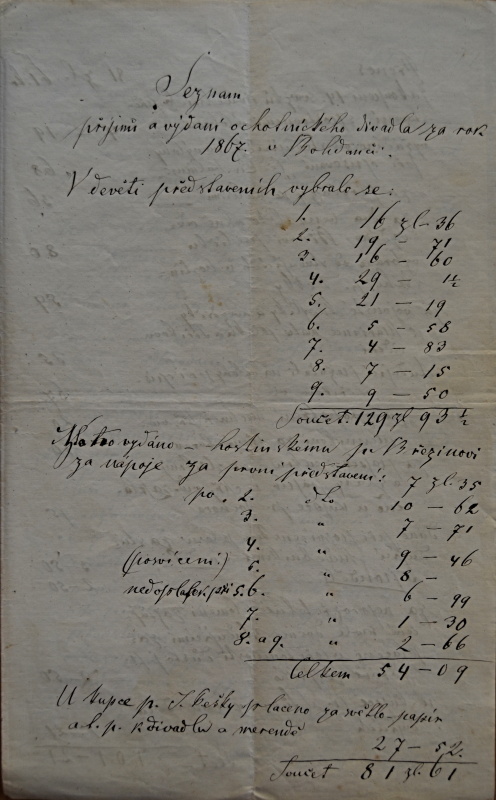 Seznam
příjmů a výdaní ochotnického divadla za rok
1867. v Bohdanči.
V devěti představeních vybralo se:
1. 16 zl – 36
2. 19 – 71
3. 16 – 60
4. 29 – 1½
5. 21 – 19
6. 5 – 58
7. 4 – 83
8. 7 – 15
9. 9 – 50
Součet. 129 zl 93 ½
vydáno – hostinskému p. Březinovi
za nápoje za první představení: 7 zl. 35
po 2. dto 10 – 62
3. " 7 – 71
4. " 9 – 46
(posvícení:) 5. " 8 –
při 5. 6. " 6 – 99
7. " 1 – 30
8. a 9. " 2 – 66
Celkem 54 – 09
U kupce p. J. placeno za světlo – papír
a t. p. k divadlu a merendě
27 – 52.
Součet 81 zl. 61